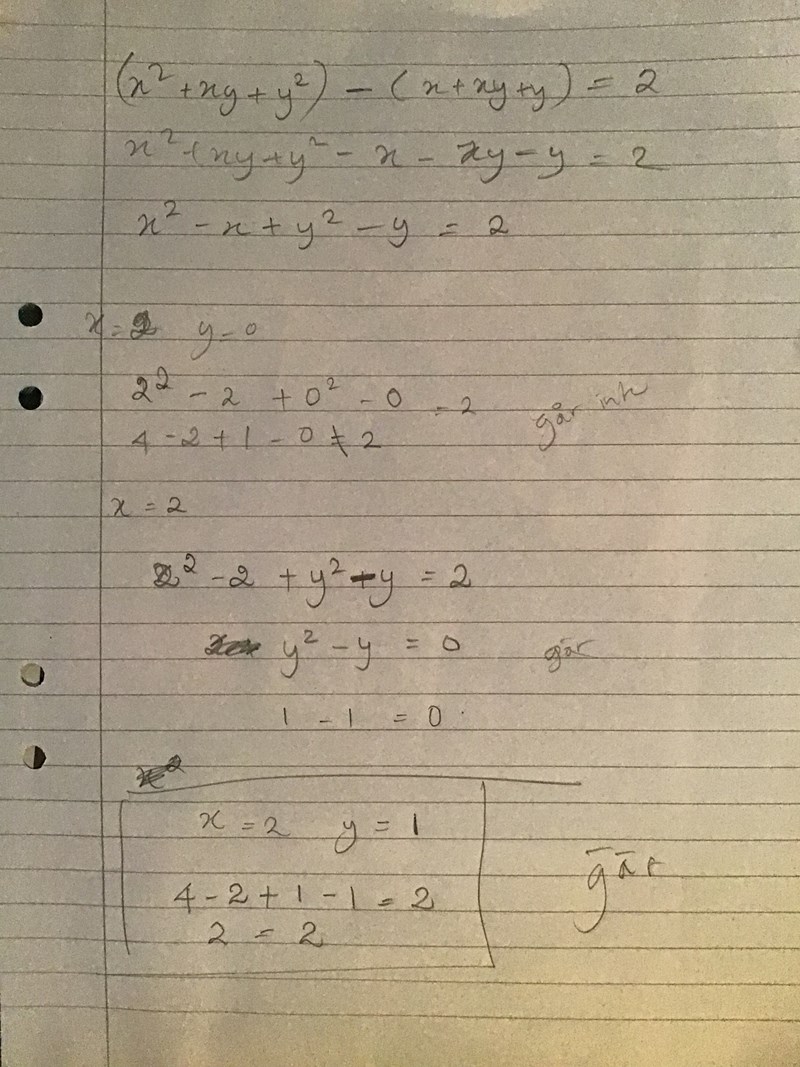 (x² + xy + y²) - (x + xy + y) = 2
x² + xy + y² - x - xy - y = 2
x² - x + y² - y = 2
x = 2 y = 0
2² - 2 + 0² - 0 = 2
går inte
4 - 2 + 1 - 0 ≠ 2
x = 2
2² - 2 + y² - y = 2
y² - y = 0 går
1 - 1 = 0
x = 2 y = 1
går
4 - 2 + 1 - 1 = 2
2 = 2